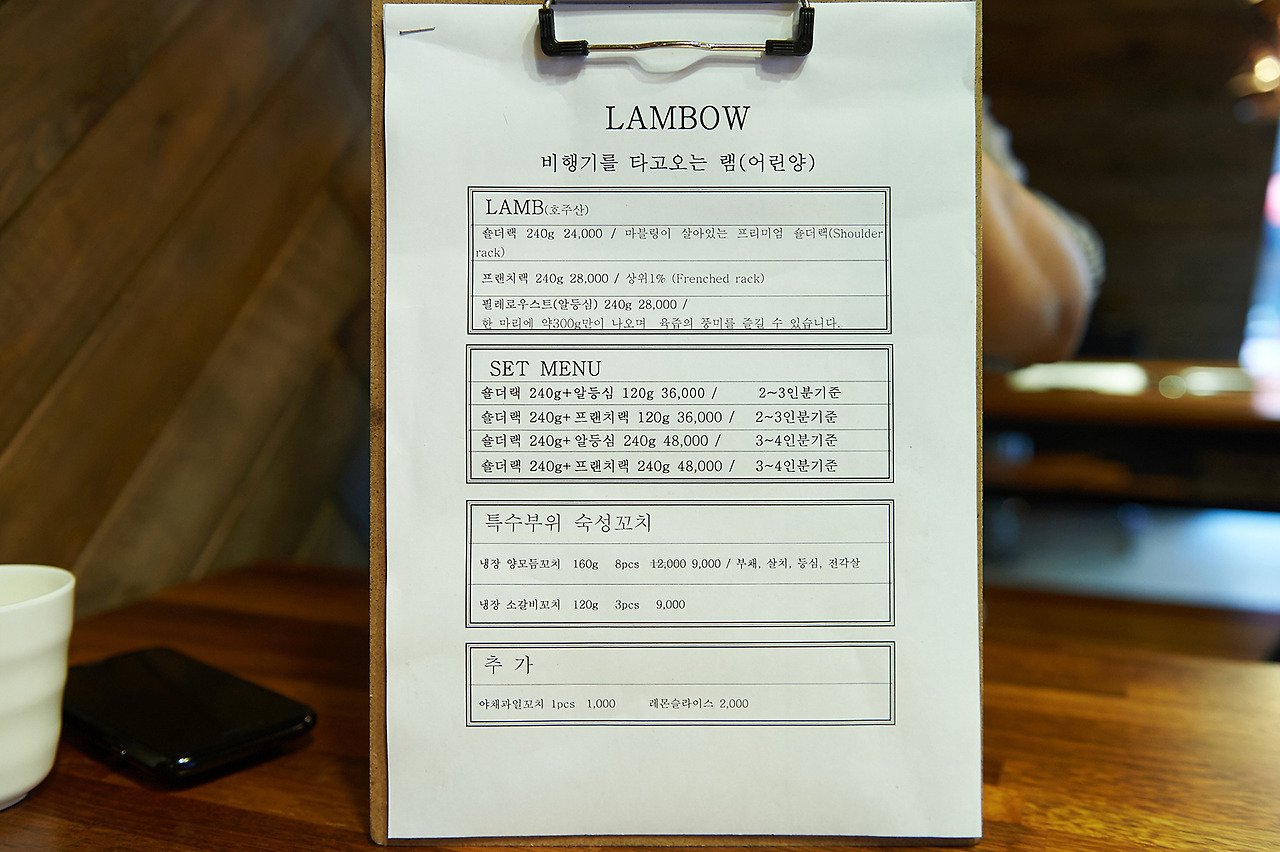 LAMBOW
비행기를 타고오는 램(어린양)
LAMB(호주산)
숄더랙 240g 24,000 / 마블링이 살아있는 프리미엄 숄더랙(Shoulder
rack)
프랜치랙 240g 28,000 / 상위1% (Frenched rack)
필레로우스트(알등심) 240g 28,000 /
한 마리에 약300g만이 나오며 육즙의 풍미를 즐길 수 있습니다.
SET MENU
숄더랙 240g+알등심 120g 36,000 / 2~3인분기준
숄더랙 240g+프랜치랙 120g 36,000 / 2~3인분기준
숄더랙 240g+알등심 240g 48,000 / 3~4인분기준
숄더랙 240g+프랜치랙 240g 48,000 / 3~4인분기준
특수부위 숙성꼬치
냉장 양모듬꼬치 160g 8pcs 12,000 9,000 / 부채, 살치, 등심, 전각살
냉장 소갈비꼬치 120g 3pcs 9,000
추 가
야채과일꼬치 1pcs 1,000 레몬슬라이스 2,000